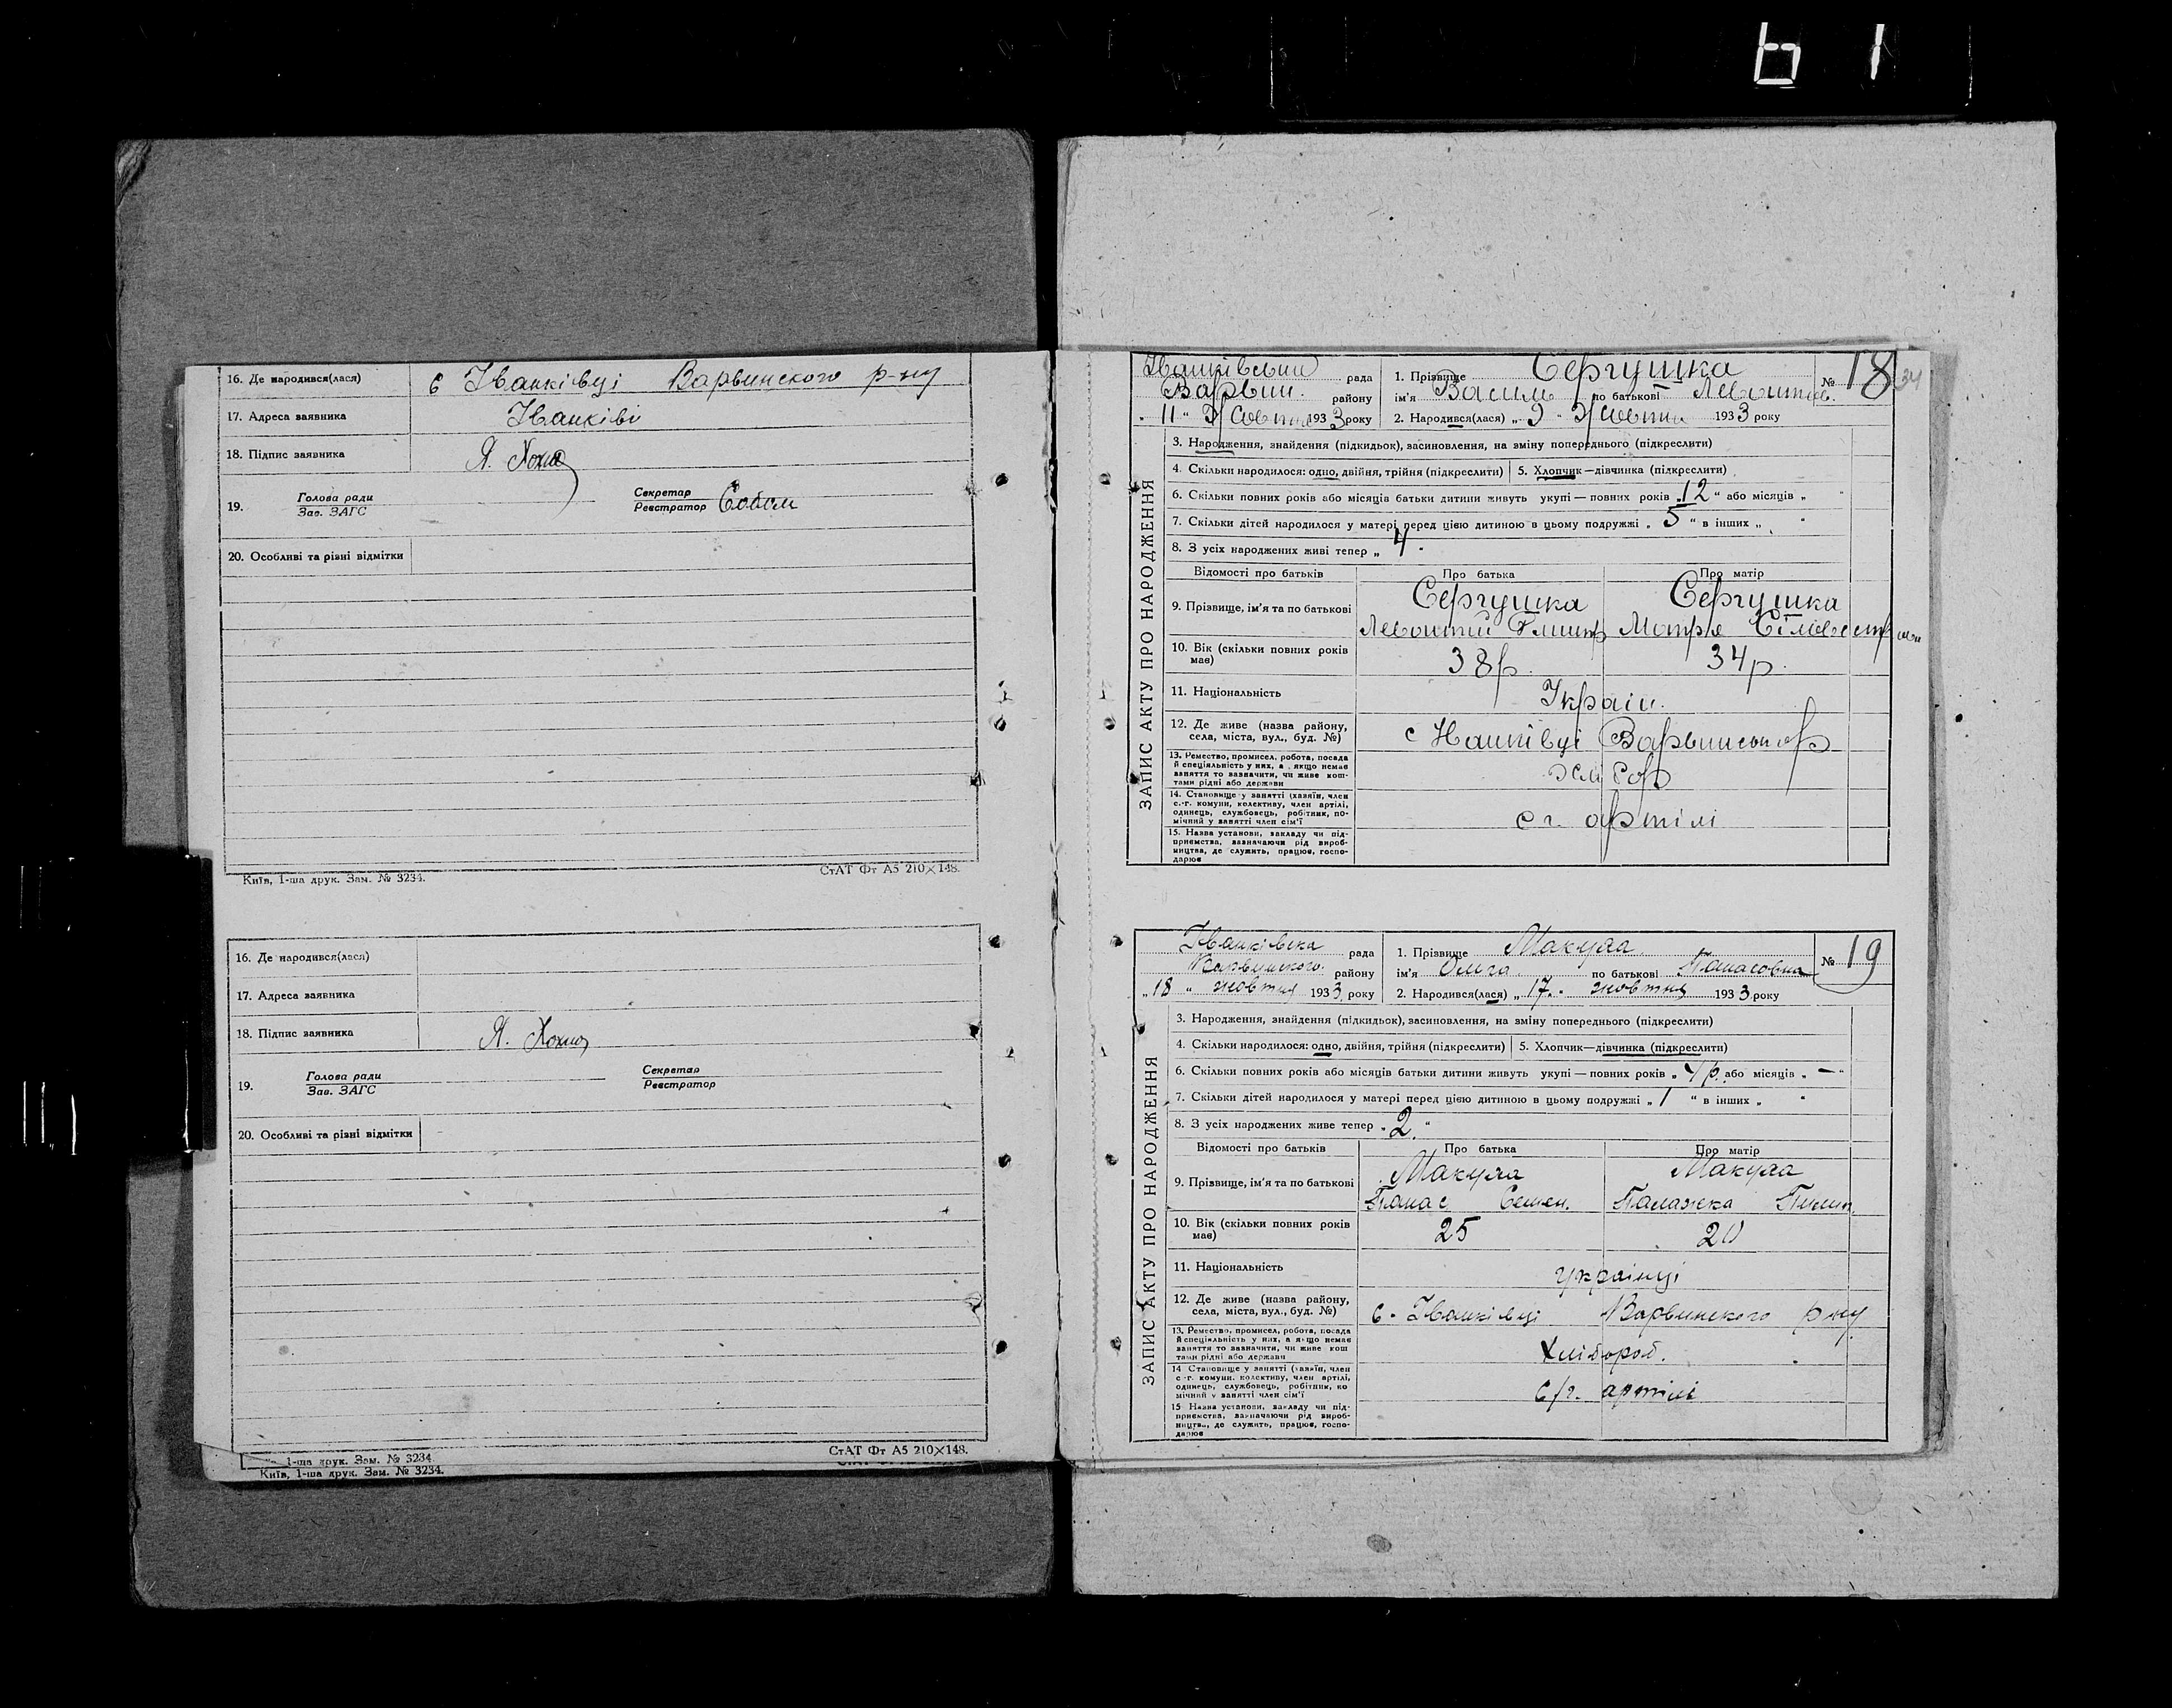 61
16. Де народився(лася) с Іванківці Варвинского р-ну
17. Адреса заявника Іванківі
18. Підпис заявника Я. Хохла
19. Голова ради Зав. ЗАГС Секретар Реєстратор
20. Особливі та різні відмітки
Київ, 1-ша друк. Зам. № 3234. СтАТ Фт А5 210×148.
16. Де народився(лася)
17. Адреса заявника
18. Підпис заявника Я.
19. Голова ради Зав. ЗАГС Секретар Реєстратор
20. Особливі та різні відмітки
1-ша друк. Зам. № 3234. СтАТ Фт А5 210×148.
Київ, 1-ша друк. Зам. № 3234.
ЗАПИС АКТУ ПРО НАРОДЖЕННЯ
рада 1. Прізвище Сергушка № 18 34
Варвин. району ім'я Василь по батькові
„ 11 “ Жовтн 1933 року 2. Народився(лася) „ 9 “ Жовтн 1933 року
3. Народження, знайдення (підкидьок), засиновлення, на зміну попереднього (підкреслити)
4. Скільки народилося: одно, двійня, трійня (підкреслити) 5. Хлопчик—дівчинка (підкреслити)
6. Скільки повних років або місяців батьки дитини живуть укупі — повних років „ 12 “ або місяців „ “
7. Скільки дітей народилося у матері перед цією дитиною в цьому подружжі „ 5 “ в інших „ “
8. З усіх народжених живі тепер „ 4 “
Відомості про батьків Про батька Про матір
9. Прізвище, ім'я та по батькові Сергушка Сергушка
Левонтій Дмитр Мотря
10. Вік (скільки повних років має) 38р. 34р.
11. Національність Україн.
12. Де живе (назва району, села, міста, вул., буд. №) с
13. Ремество, промисел, робота, посада й спеціяльність у них, а якщо немає заняття то зазначити, чи живе коштами рідні або держави
14. Становище у занятті (хазяїн, член с.-г. комуни, колективу, член артілі, одинець, службовець, робітник, помічний у занятті член сім'ї с г. артілі
15. Назва установи, закладу чи підприємства, зазначаючи рід виробництва, де служить, працює, господарює
ЗАПИС АКТУ ПРО НАРОДЖЕННЯ
Іванківска рада 1. Прізвище Макула № 19
Варвинского району ім'я Ольга по батькові Панасовна
„ 18 “ жовтня 1933 року 2. Народився(лася) „ 17 “ жовтня 1933 року
3. Народження, знайдення (підкидьок), засиновлення, на зміну попереднього (підкреслити)
4. Скільки народилося: одно, двійня, трійня (підкреслити) 5. Хлопчик—дівчинка (підкреслити)
6. Скільки повних років або місяців батьки дитини живуть укупі — повних років „ 4 р. або місяців „ — “
7. Скільки дітей народилося у матері перед цією дитиною в цьому подружжі „ 1 “ в інших „ “
8. З усіх народжених живе тепер „ 2. “
Відомості про батьків Про батька Про матір
9. Прізвище, ім'я та по батькові Макула Макула
Панас Семен. Палажка Пилип
10. Вік (скільки повних років має) 25 20
11. Національність українці
12. Де живе (назва району, села, міста, вул., буд. №) с. Іванківці Варвинского р-ну
13. Ремество, промисел, робота, посада й спеціяльність у них, а якщо немає заняття то зазначити, чи живе коштами рідні або держави Хлібороб.
14. Становище у занятті (хазяїн, член с.-г. комуни, колективу, член артілі, одинець, службовець, робітник, помічний у занятті член сім'ї с/г. артілі
15. Назва установи, закладу чи підприємства, зазначаючи рід виробництва, де служить, працює, господарює